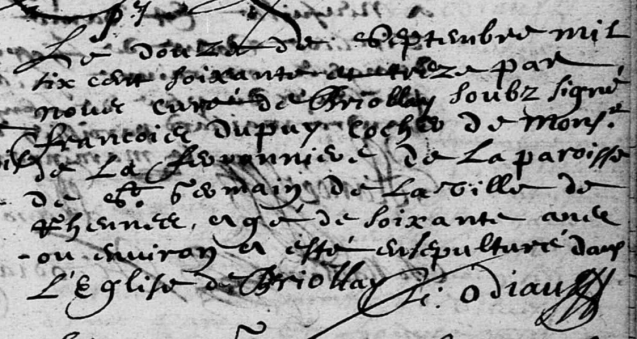 Le douze de Septenbre mil
six cent soixante et treze par
nous curé de Briollay soubz signé
francois dupuy cocher de Mons.r
de La de La paroisse
de St. Germain de La ville de
Rhennes, agé de soixante ans
ou environ a esté ensepulturé dans
L'Eglise de Briollay